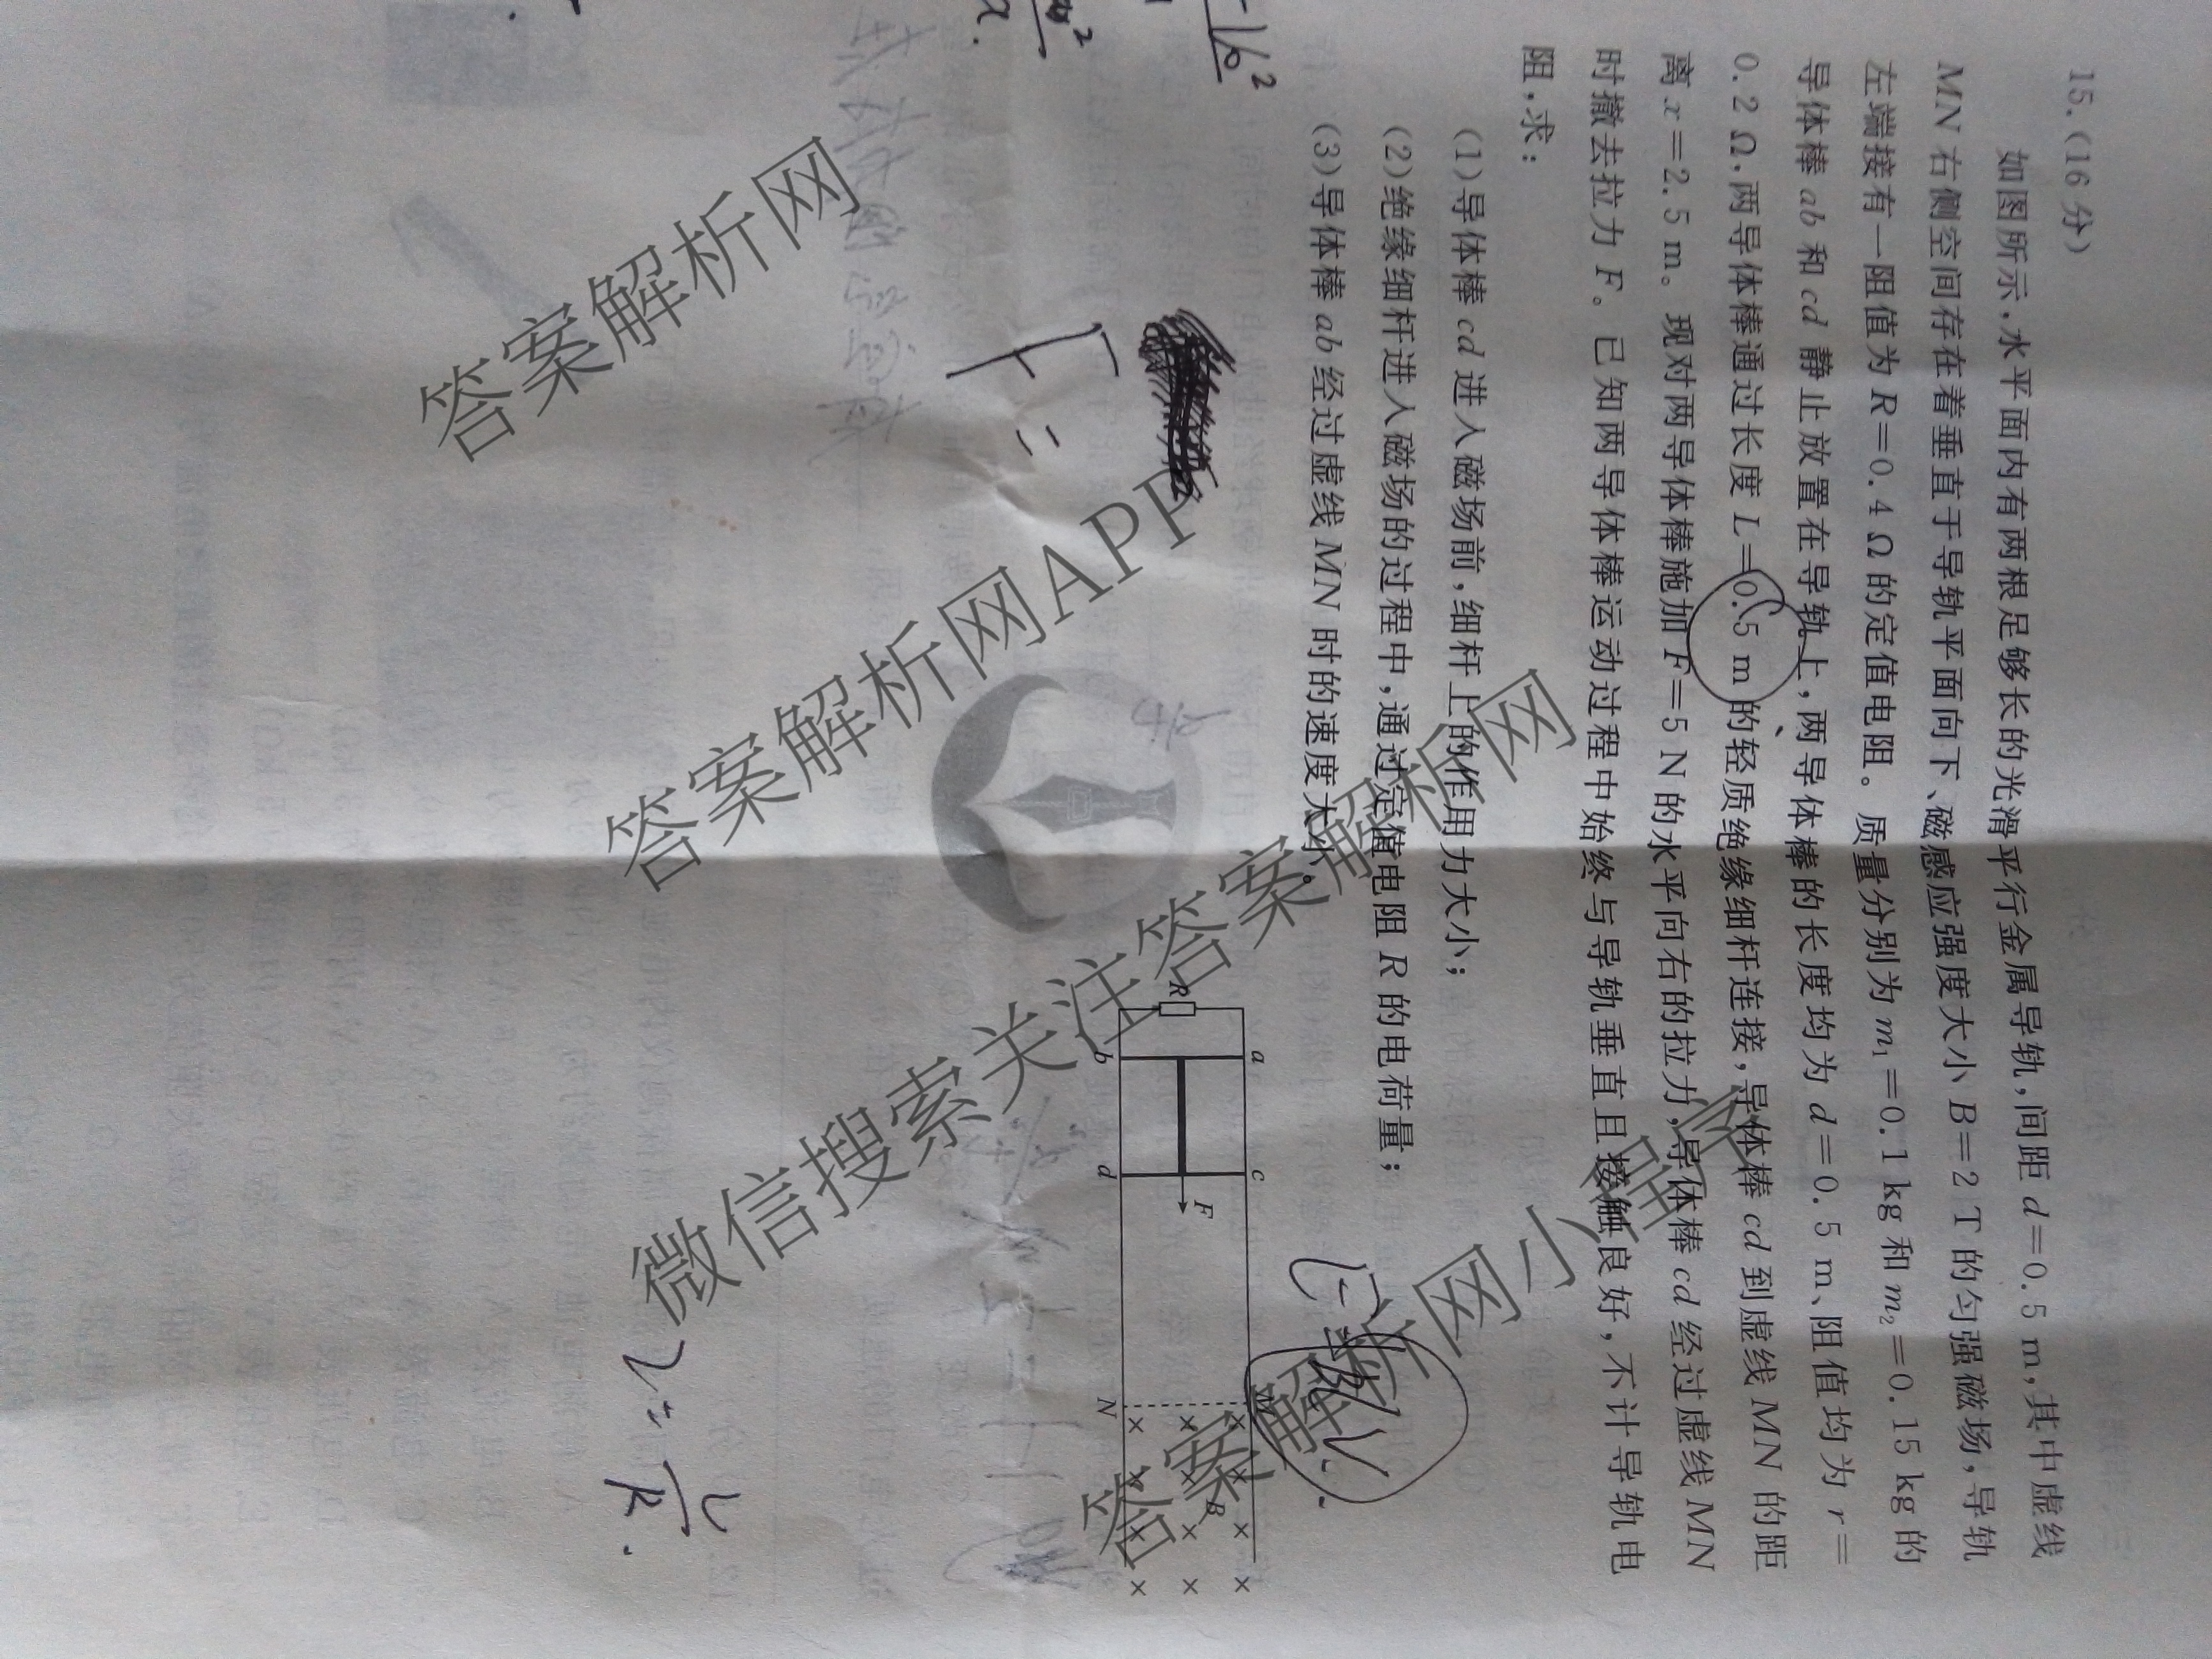 15.(16分)
如图所示,水平面内有两根足够长的光滑平行金属导轨,间距 d=0.5 m,其中虚线
MN 右侧空间存在着垂直于导轨平面向下、磁感应强度大小 B=2 T 的匀强磁场,导轨
左端接有一阻值为 R=0.4 Ω 的定值电阻。质量分别为 m₁=0.1 kg 和 m₂=0.15 kg 的
导体棒 ab 和 cd 静止放置在导轨上,两导体棒的长度均为 d=0.5 m、阻值均为 r=
0.2 Ω,两导体棒通过长度 L=0.5 m 的轻质绝缘细杆连接,导体棒 cd 到虚线 MN 的距
离 x=2.5 m。现对两导体棒施加 F=5 N 的水平向右的拉力,导体棒 cd 经过虚线 MN
时撤去拉力 F。已知两导体棒运动过程中始终与导轨垂直且接触良好,不计导轨电
阻,求:
(1)导体棒 cd 进入磁场前,细杆上的作用力大小;
(2)绝缘细杆进入磁场的过程中,通过定值电阻 R 的电荷量;
(3)导体棒 ab 经过虚线 MN 时的速度大小。
R
a
b
c
d
F
N
B
F=
答案解析网
答案解析网APP
微信搜索关注答案解析网
答案解析网小程序